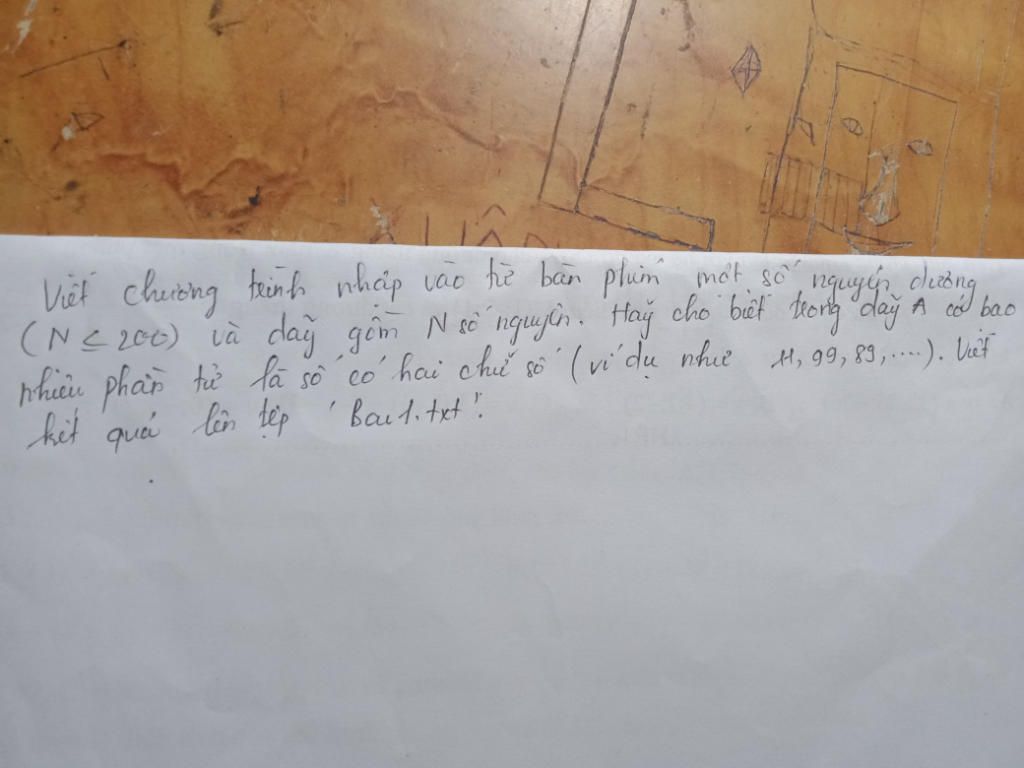 Viết chương trình nhập vào từ bàn phím một số nguyên dương
(N ≤ 200) và dãy gồm N số nguyên. Hãy cho biết trong dãy A có bao
nhiêu phần tử là số có hai chữ số (ví dụ như 11, 99, 89, ....). Viết
kết quả lên tệp 'Bai1.txt'.